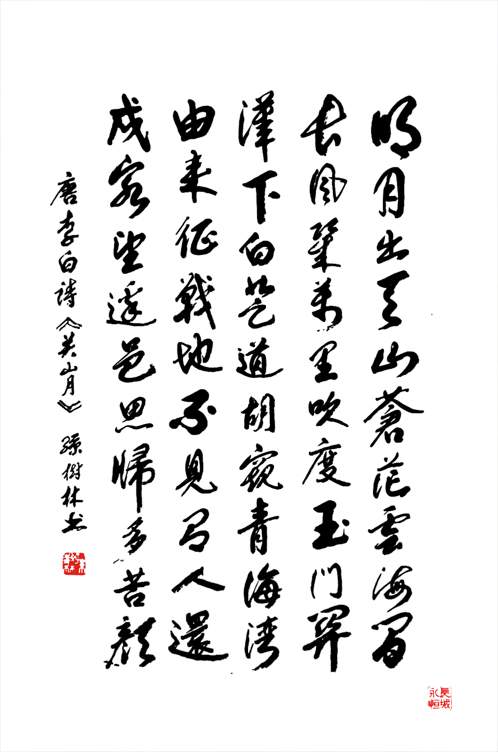 明月出天山蒼茫雲海間
長風幾萬里吹度玉門關
漢下白登道胡窺青海灣
由來征戰地不見有人還
戍客望邊邑思歸多苦顏
唐李白詩《关山月》 孫樹林书
長城永恒